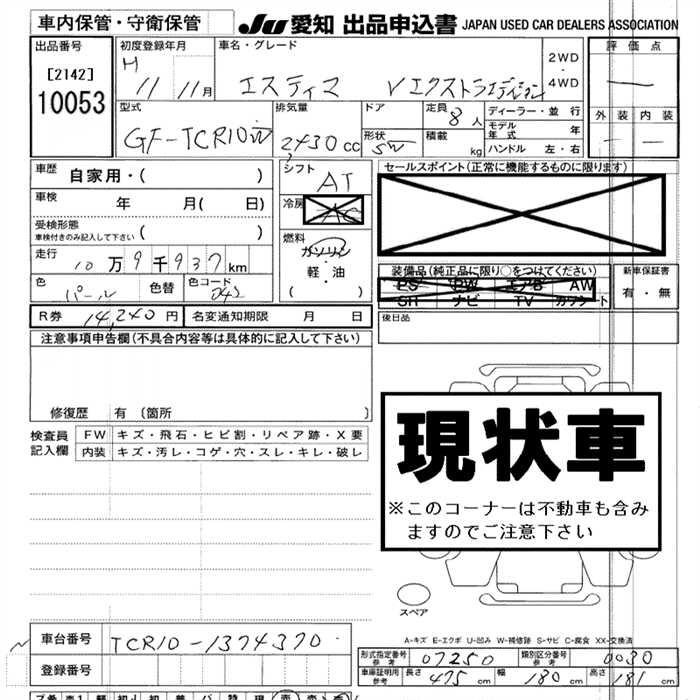 車内保管・守衛保管
JU 愛知 出品申込書 JAPAN USED CAR DEALERS ASSOCIATION
出品番号
[2142]
10053
初度登録年月
H 11 11月
車名・グレード
エスティマ Vエクストラエディション
2WD
・
4WD
評価点
型式
GF-TCR10W
排気量
2,430 cc
ドア
形状
5W
定員
8人
積載
kg
ディーラー・並行
モデル年式 年
ハンドル 左・右
外装 内装
車歴
自家用・( )
車検
年 月( 日)
受検形態
車検付きのみ記入して下さい ( )
走行
10万9千937km
色
パール
色替
色コード
042
シフト
AT
冷房
燃料
ガソリン
・
軽・油
( )
セールスポイント(正常に機能するものに限ります)
装備品(純正品に限り○をつけてください)
PS PW エアB AW
SH ナビ TV カワシート
新車保証書
有・無
後日品
R券 14,240円
名変通知期限 月 日
注意事項申告欄(不具合内容等は具体的に記入して下さい)
修復歴 有 〔箇所 〕
検査員
記入欄
FW キズ・飛石・ヒビ割・リペア跡・X要
内装 キズ・汚レ・コゲ・穴・スレ・キレ・破レ
現状車
※このコーナーは不動車も含み
ますのでご注意下さい
スペア
A-キズ E-エクボ U-凹み W-補修跡 S-サビ C-腐食 XX-交換済
車台番号 TCR10-1374370
登録番号
形式指定番号
参考
07250
類別区分番号
参考
0030
車庫証明用
参考
長さ 475 cm 幅 180 cm 高さ 181 cm